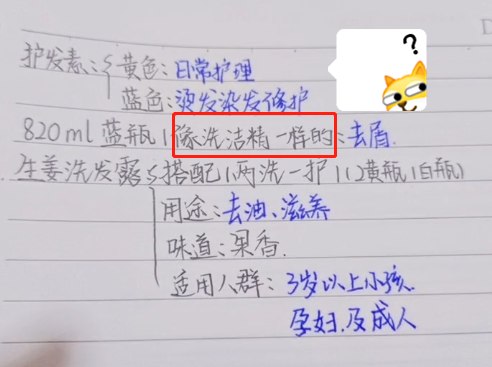 护发素：黄色：日常护理
蓝色：烫发染发修护
820ml 蓝瓶（像洗洁精一样的：去盾.
生姜洗发露 搭配（两洗一护）（2黄瓶1白瓶）
用途：去油、滋养
味道：果香.
适用人群：3岁以上小孩.
孕妇.及成人
?